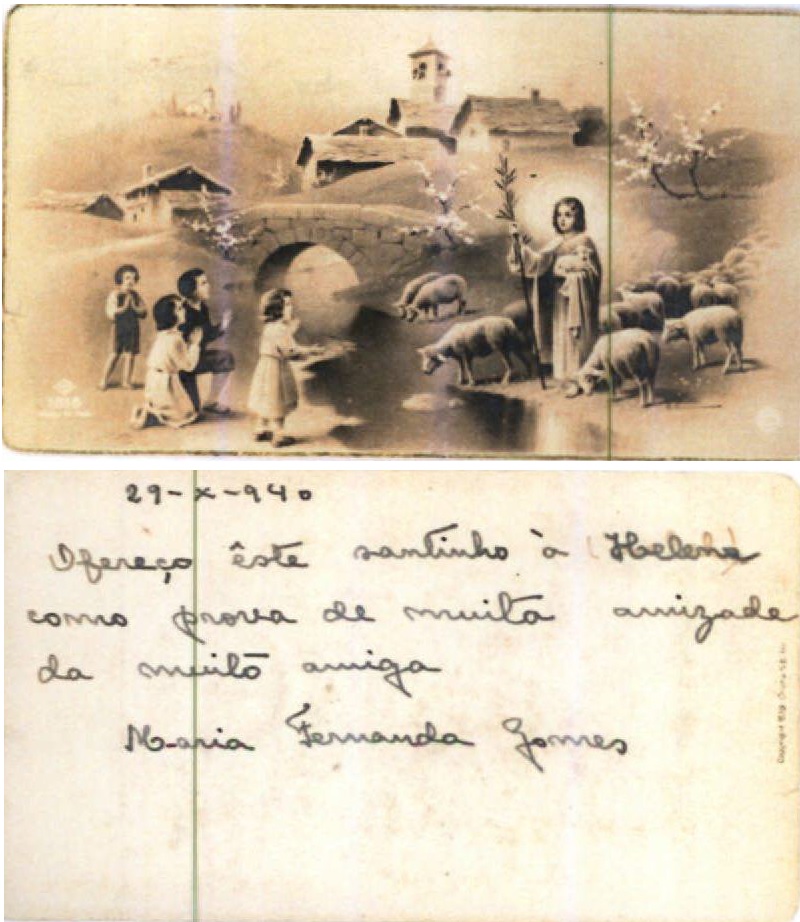 29-X-940
Ofereço êste santinho à Helena
como prova de muita amizade
da muitō amiga
Maria Fernanda Gomes
Copyright 1939